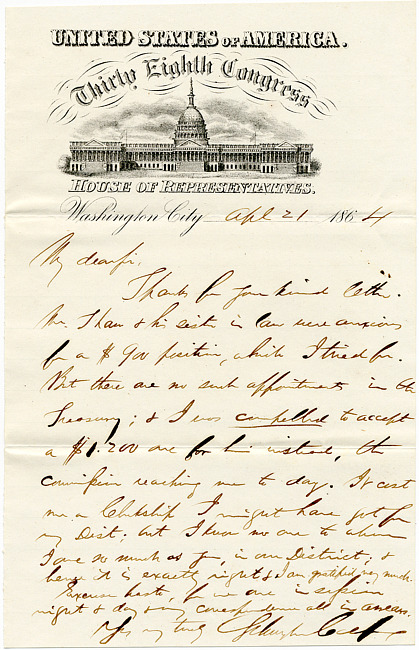 UNITED STATES OF AMERICA.
Thirty Eighth Congress
HOUSE OF REPRESENTATIVES.
Washington City Apl 21 1864
My dear Sir,
Thanks for your kind letter.
Mr. Shaw & his sister in law were anxious
for a $900 position, which I tried for.
But there are no such appointments in the
Treasury; & I was compelled to accept
a $1.200 one for his instead, the
commission reaching me to day. It cost
me a Clerkship I might have got for
my Dist; but I know no one to whom
I owe so much as you, in our District; &
hence it is exactly right & I am gratified very much.
Excuse haste, for we are in session
night & day & my correspondence all in arrears.
Yrs very truly Schuyler Colfax